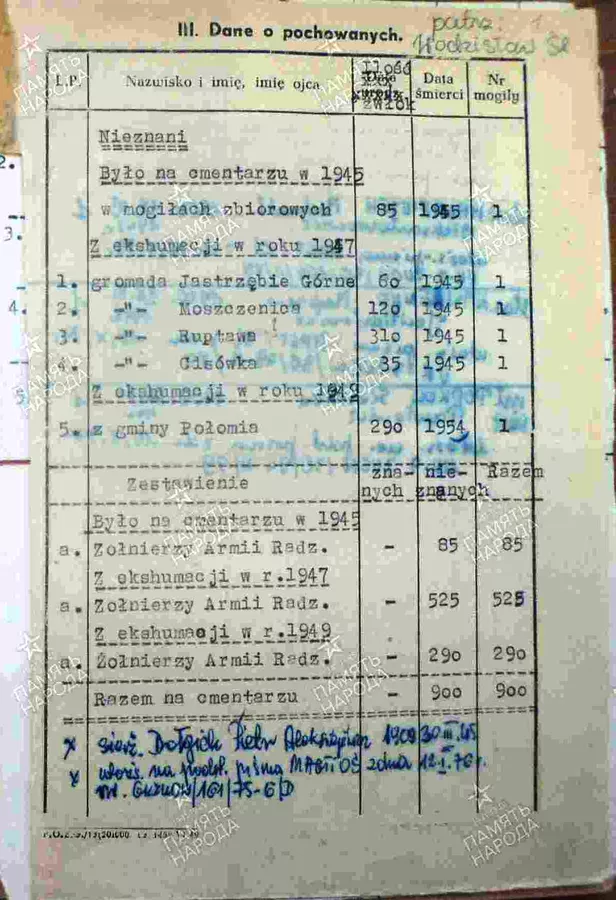 III. Dane o pochowanych.
patrz: 1
Wodzisław Śl
L.P. Nazwisko i imię, imię ojca Ilość zwłok Data śmierci Nr mogiły
Nieznani
Było na cmentarzu w 1945
w mogiłach zbiorowych 85 1945 1
Z ekshumacji w roku 1947
1. gromada Jastrzębie Górne 60 1945 1
2. -"- Moszczenica 120 1945 1
3. -"- Ruptawa 310 1945 1
4. -"- Cisówka 35 1945 1
Z ekshumacji w roku 1949
5. z gminy Połomia 290 1954 1
Zestawienie zna- nych nie- znanych Razem
Było na cmentarzu w 1945
a. Żołnierzy Armii Radz. - 85 85
Z ekshumacji w r.1947
a. Żołnierzy Armii Radz. - 525 525
Z ekshumacji w r.1949
a. Żołnierzy Armii Radz. - 290 290
Razem na cmentarzu - 900 900
x sierż. Dołgich Piotr 1909 30 III.45
x na podst. pisma z dnia 12.I.76r.
2.
3.
4.
5
ПАМЯТЬ НАРОДА